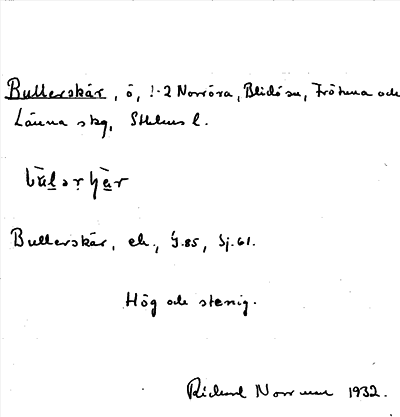 Bullerskär, ö, 1-2 Norröra, Blidö sn, Frötuna och
Länna skg, Sthlms l.
Bullerskär, ek., G.85, Sj.61.
Hög och stenig.
Rickard 1932.